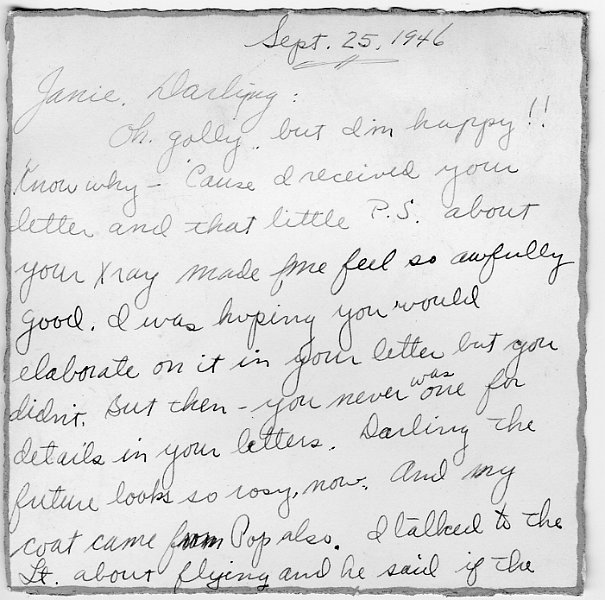 Sept. 25, 1946
Janie, Darling:
Oh, golly, but I'm happy!!
Know why - 'Cause I received your
letter and that little P.S. about
your Xray made me feel so awfully
good. I was hoping you would
elaborate on it in your letter but you
didn't. But then - you never was one for
details in your letters. Darling the
future looks so rosy, now. And my
coat came from Pop also. I talked to the
Lt. about flying and he said if the